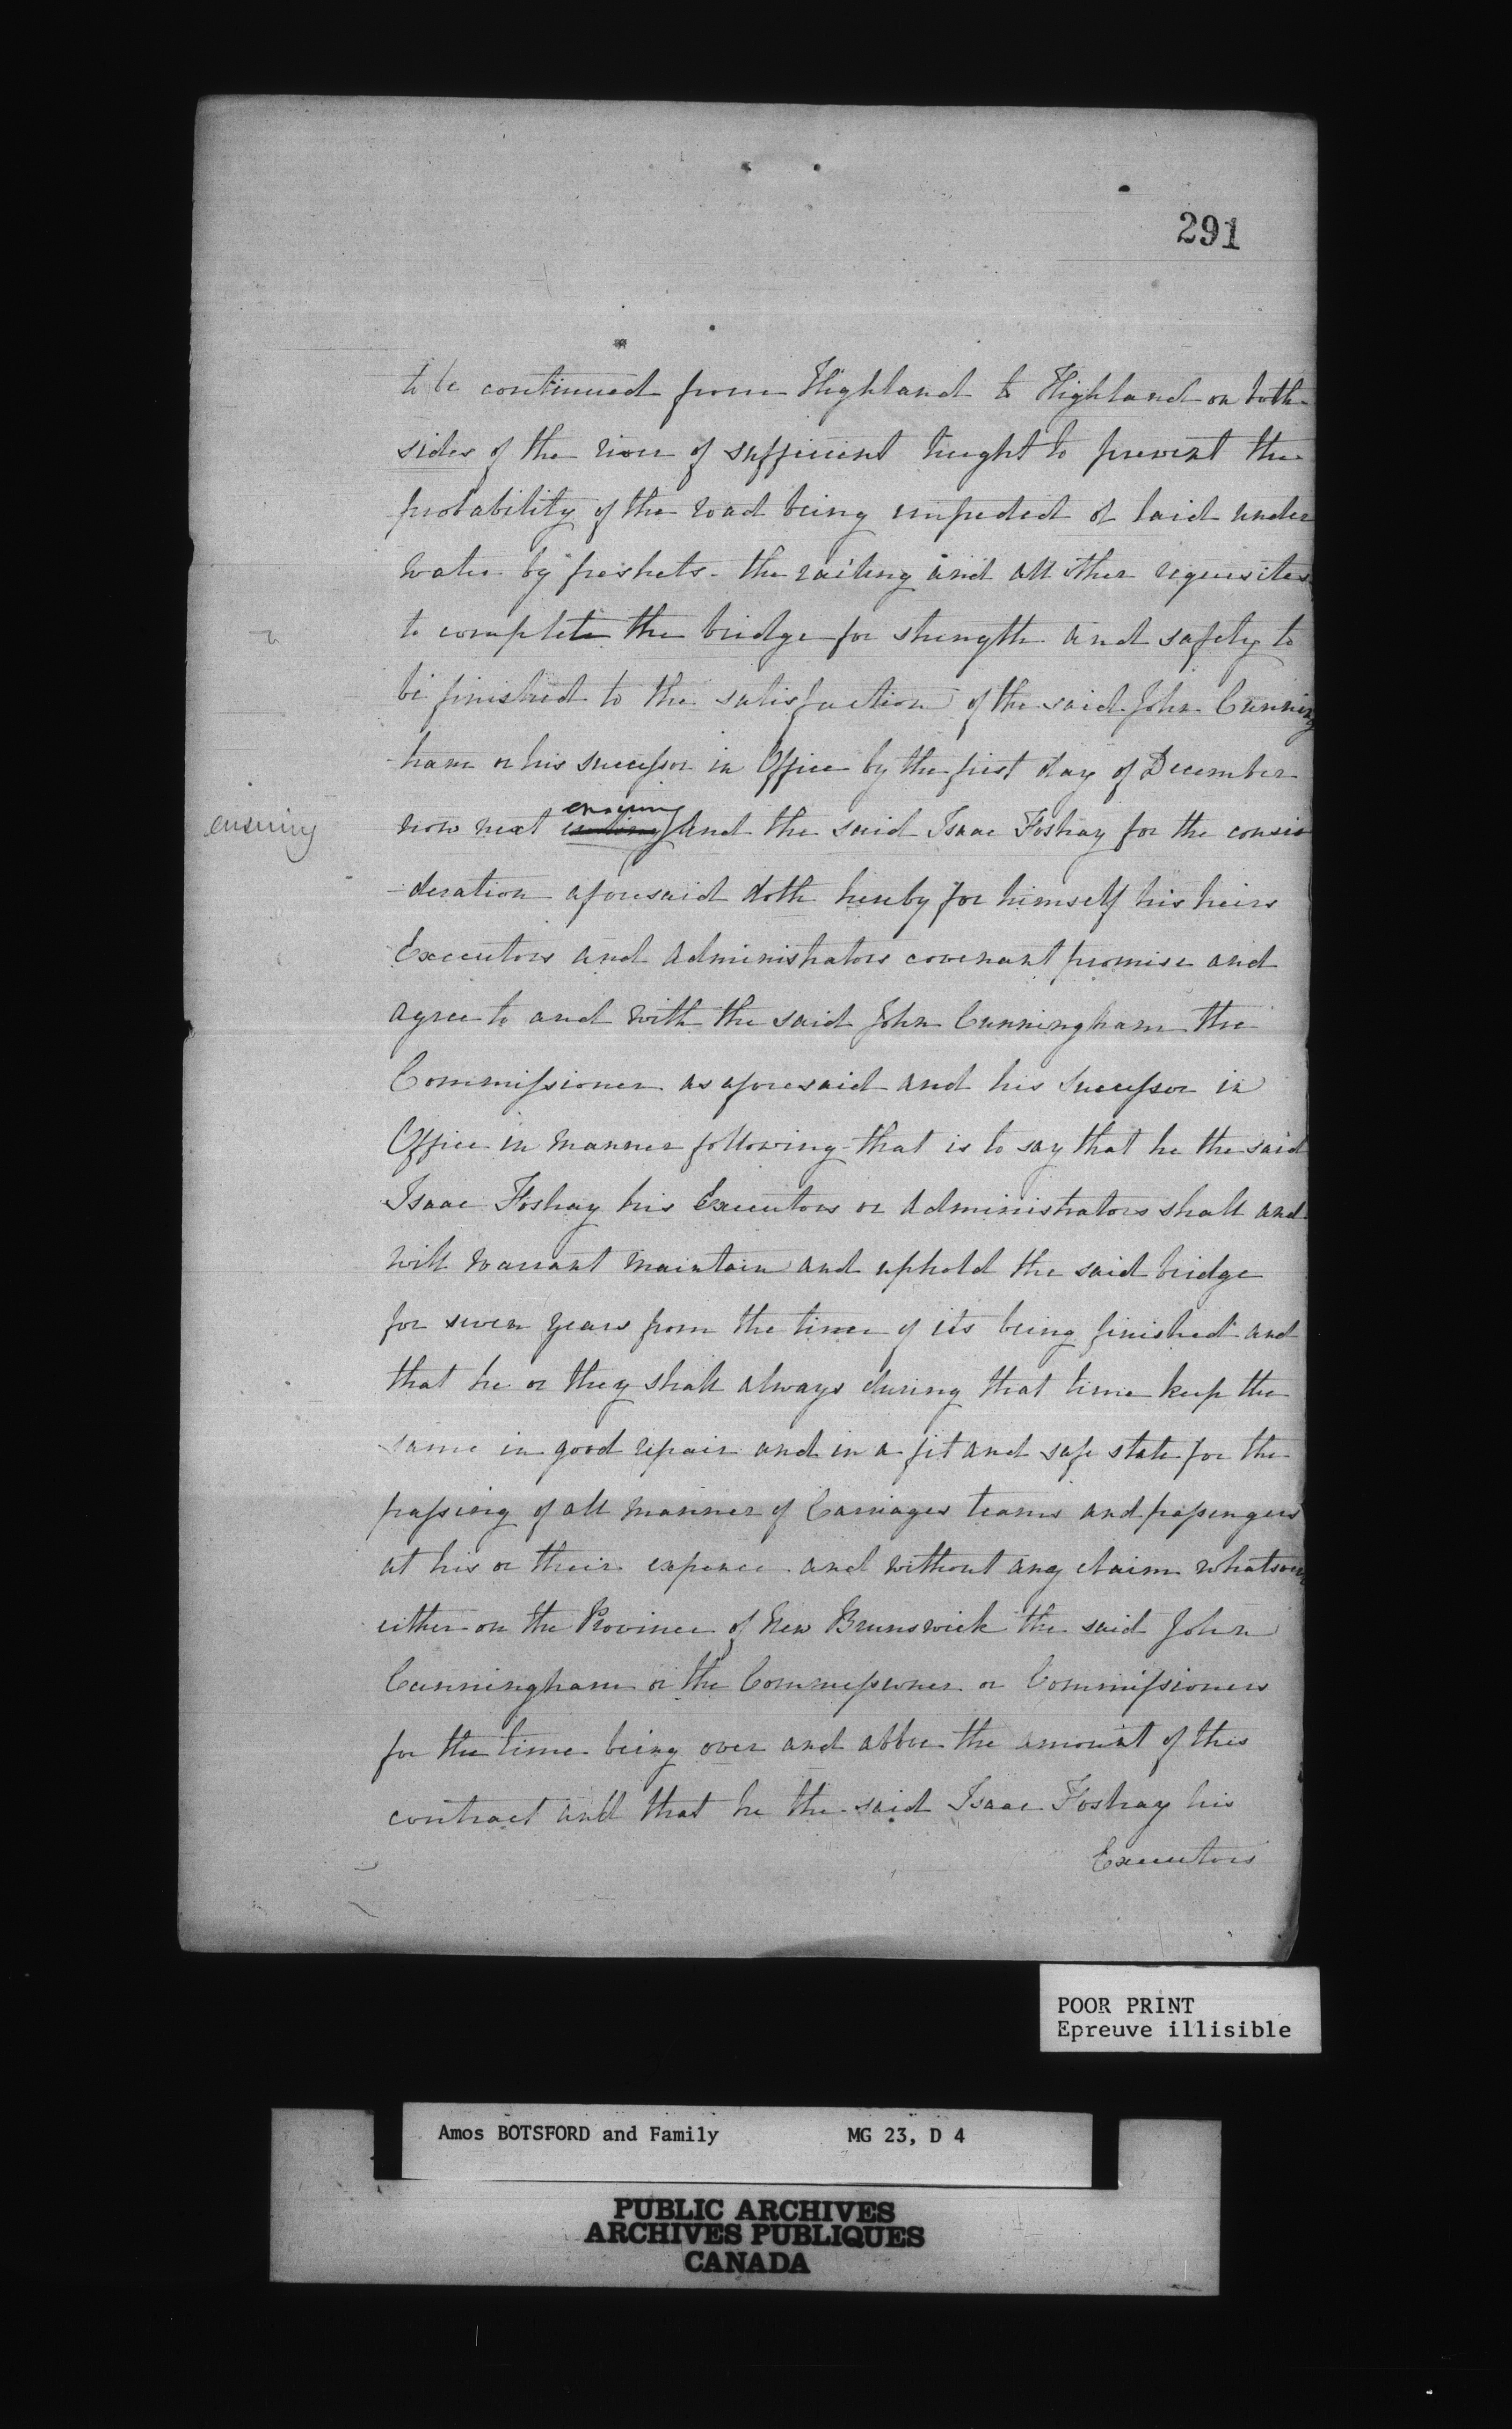 291
to be continued from Highland to Highland on both
sides of the river of sufficient heught to prevent the
probability of the road being impeded ot laid under
water by freshets - the railing and all other requisites
to complete the bridge for strength and safety to
be finished to the satisfaction of the said John Cunning
ham or his successor in Office by the first day of December
ensuing
now next ensuing And the said Isaac Foshay for the consi
ensuing
deration aforesaid doth hereby for himself his heirs
Executors and administrators covenant promise and
agree to and with the said John Cunningham the
Commissioner as aforesaid and his Successor in
Office in manner following - that is to say that he the said
Isaac Foshay his Executors or Administrators shall and
will warrant maintain and uphold the said bridge
for seven years from the time of its being finished and
that he or they shall always during that time keep the
same in good repair and in a fit and safe state for the
passing of all manner of Carriages teams and passengers
at his or their expence and without any claim whatsoever
either on the Province of New Brunswick the said John
Cunningham or the Commissioner or Commissioners
for the time being over and above the amount of this
contract and that he the said Isaac Foshay his
Executors
POOR PRINT
Epreuve illisible
Amos BOTSFORD and Family MG 23, D 4
PUBLIC ARCHIVES
ARCHIVES PUBLIQUES
CANADA